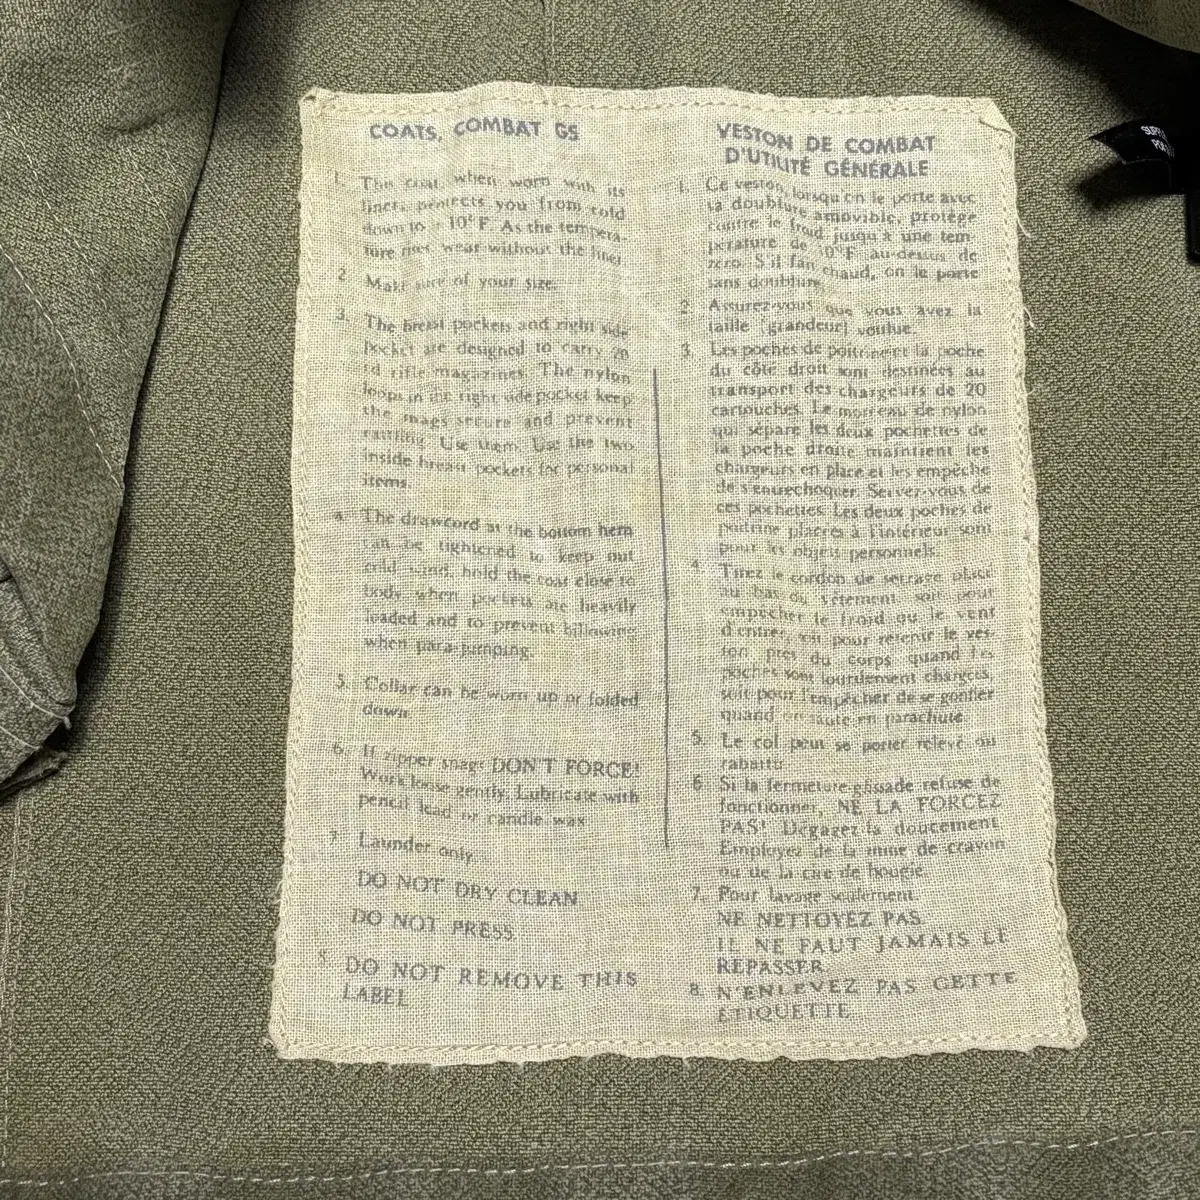 COATS, COMBAT GS
1. This coat, when worn with its
liner, protects you from cold
down to 10° F. As the tempera-
ture rises, wear without the liner.
2. Make sure of your size.
3. The breast pockets and right side
pocket are designed to carry 20
rd rifle magazines. The nylon
loops in the right side pocket keep
the mags secure and prevent
rattling. Use them. Use the two
inside breast pockets for personal
items.
4. The drawcord at the bottom hem
can be tightened to keep out
cold wind, hold the coat close to
body when pockets are heavily
loaded and to prevent billowing
when para-jumping.
5. Collar can be worn up or folded
down.
6. If zipper snags DON'T FORCE!
Work loose gently. Lubricate with
pencil lead or candle wax.
7. Launder only.
DO NOT DRY CLEAN
DO NOT PRESS
8. DO NOT REMOVE THIS
LABEL
VESTON DE COMBAT
D'UTILITÉ GÉNÉRALE
1. Ce veston, lorsqu'on le porte avec
sa doublure amovible, protège
contre le froid jusqu'à une tem-
pérature de 10°F au-dessus de
zéro. S'il fait chaud, on le porte
sans doublure.
2. Assurez-vous que vous avez la
taille (grandeur) voulue.
3. Les poches de poitrine et la poche
du côté droit sont destinées au
transport des chargeurs de 20
cartouches. Le morceau de nylon
qui sépare les deux pochettes de
la poche droite maintient les
chargeurs en place et les empêche
de s'entrechoquer. Servez-vous de
ces pochettes. Les deux poches de
poitrine placées à l'intérieur sont
pour les objets personnels.
4. Tirez le cordon de serrage placé
au bas du vêtement soit pour
empêcher le froid ou le vent
d'entrer, soit pour retenir le ves-
ton près du corps quand les
poches sont lourdement chargées,
soit pour l'empêcher de se gonfler
quand on saute en parachute.
5. Le col peut se porter relevé ou
rabattu.
6. Si la fermeture glissade refuse de
fonctionner, NE LA FORCEZ
PAS! Dégagez-la doucement.
Employez de la mine de crayon
ou de la cire de bougie.
7. Pour lavage seulement.
NE NETTOYEZ PAS
IL NE FAUT JAMAIS LE
REPASSER
8. N'ENLEVEZ PAS CETTE
ÉTIQUETTE